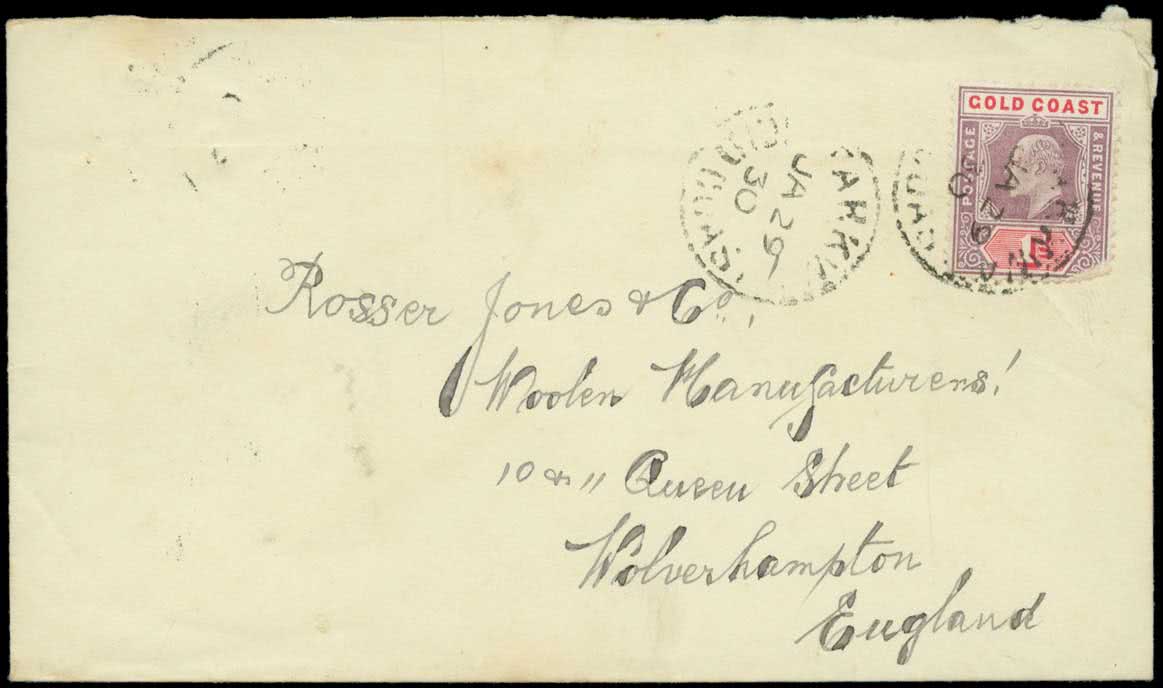 GOLD COAST
POSTAGE
& REVENUE
1D
JA 29
30
JA 29
Rosser Jones & Co.,
Woolen Manufacturers!
10 & 11 Queen Street
Wolverhampton
England